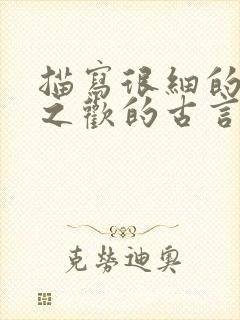 描寫很細的
之歡的古言
克勞迪奧